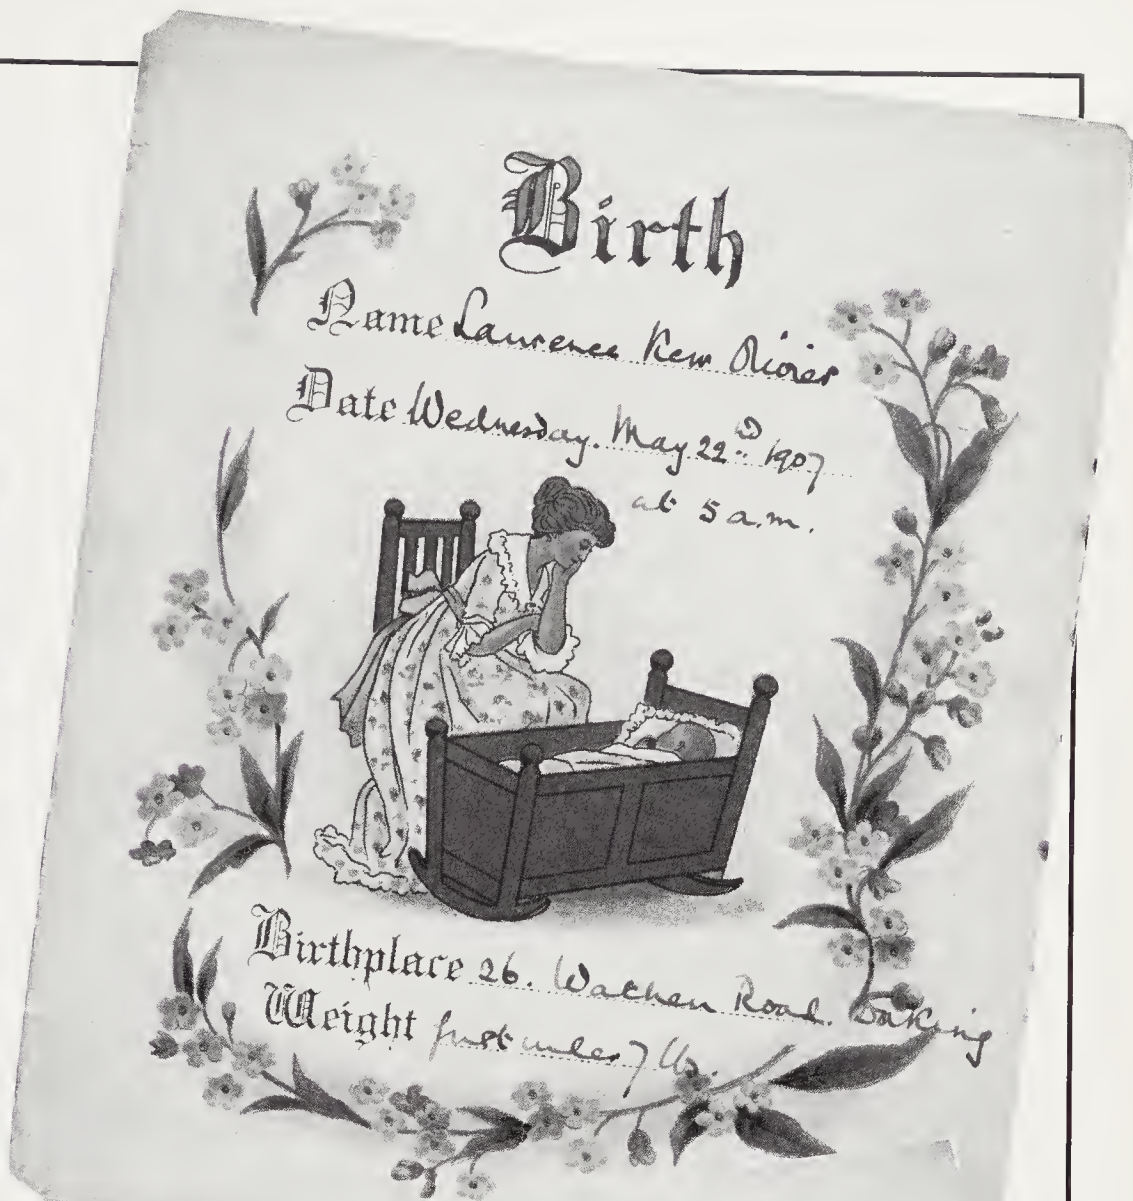 Birth
Name Laurence Kerr Olivier
Date Wednesday. May 22nd 1907
at 5 a.m.
Birthplace 26. Wathen Road. Dorking
Weight just under 7 lbs.